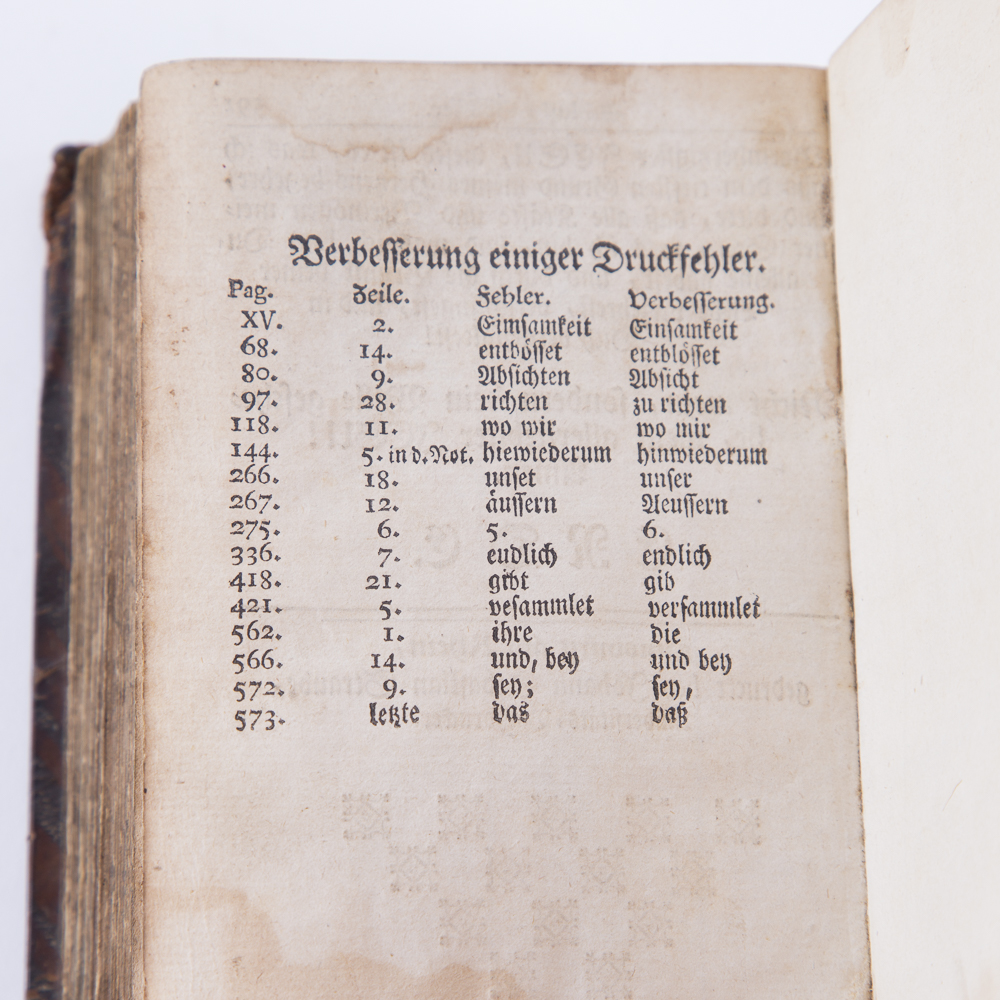 Verbesserung einiger Druckfehler.
Pag. Zeile. Fehler. Verbesserung.
XV. 2. Eimsamkeit Einsamkeit
68. 14. entbösset entblösset
80. 9. Absichten Absicht
97. 28. richten zu richten
118. 11. wo wir wo mir
144. 5. in d. Not. hiewiederum hinwiederum
266. 18. unset unser
267. 12. äussern Aeussern
275. 6. 5. 6.
336. 7. eudlich endlich
418. 21. gibt gib
421. 5. vesammlet versammlet
562. 1. ihre die
566. 14. und, bey und bey
572. 9. sey; sey,
573. letzte das daß